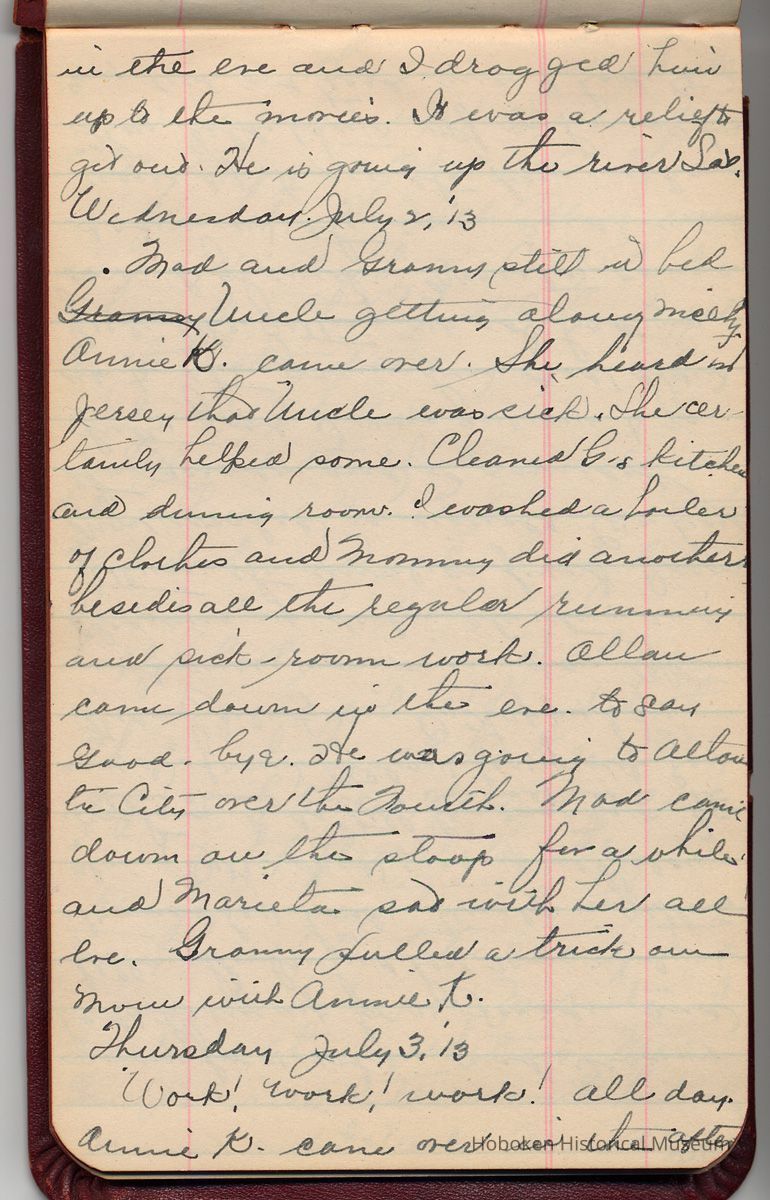 in the eve and I dragged him
up to the movies. It was a relief to
get out. He is going up the river Sat.
Wednesday. July 2, '13
. Mad and Granny still in bed
Granny Uncle getting along nicely
Annie K. came over. She heard in
Jersey that Uncle was sick. She cer-
tainly helped some. Cleaned G's kitchen
and dining room. I washed a boiler
of clothes and Mommy did another
besides all the regular running
and sick-room work. Allan
came down in the eve. to say
Good-bye. He was going to Atlan
tic City over the Fourth. Mad came
down on the stoop for a while
and Marieta sat with her all
eve. Granny pulled a trick on
Mom with Annie K.
Thursday July 3, '13
Work! Work! work! all day.
Annie K. came over in the after
Hoboken Historical Museum